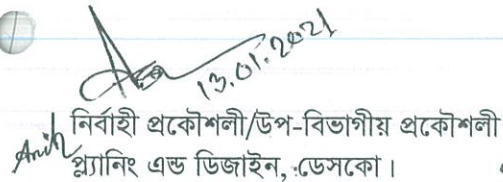 13.01.2021
নির্বাহী প্রকৌশলী/উপ-বিভাগীয় প্রকৌশলী
প্ল্যানিং এন্ড ডিজাইন, ডেসকো।